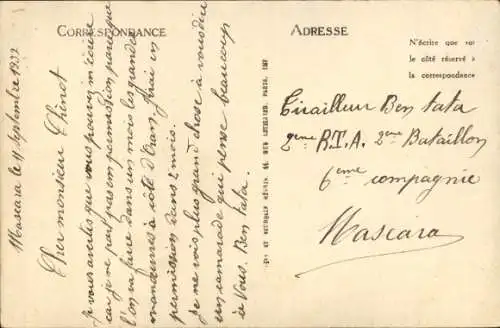 CORRESPONDANCE
Mascara le 11 Septembre 1932
Cher monsieur Thénot
Je vous avertis que vous pouvez m'écrire
car je ne part pas en permission parce que
l'on va faire dans un mois les grandes
manœuvres à côté d'Oran. J'irai en
permission dans 2 mois.
Je ne vois plus grand chose à vous dire
un camarade qui pense beaucoup
à Vous. Ben tata.
ADRESSE
N'écrire que
le côté réservé
la correspondance
Tirailleur Ben tata
2ème R.T.A. 2ème Bataillon
6ème compagnie
Mascara